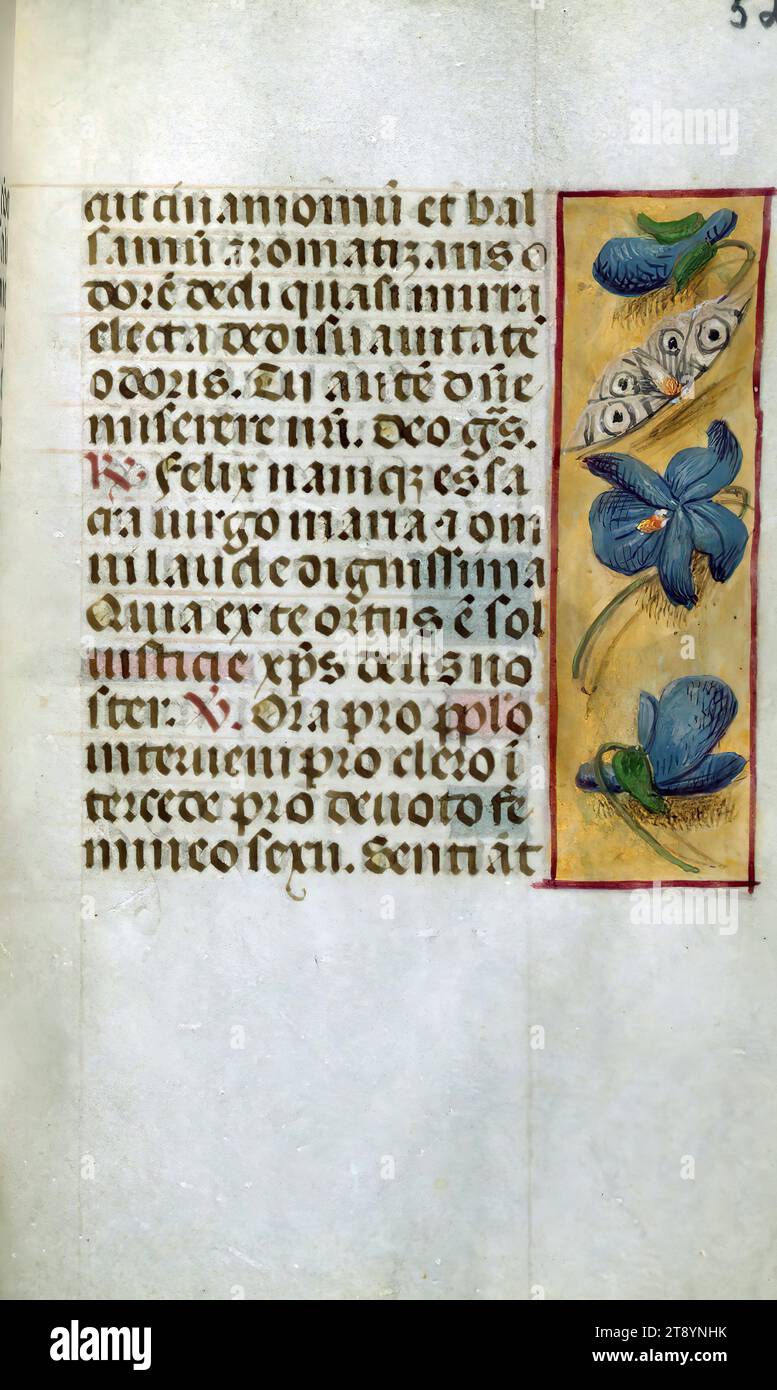 52
cut cinamomū et bal
samū aromatizans o
dorē dedi quasi mirra
electa dedi suauitatē
odoris. Tu autē dn̄e
miserere nr̄i. Deo gr̄as.
R. Felix namq; es sa
cra uirgo maria ⁊ om
ni laude dignissima
Quia ex te ortus ē sol
iusticie xp̄s deus no
ster. V. Ora pro pplo
interueni pro clero i
tercede pro deuoto fe
mineo sexu. Sentiāt
alamy
alamy
Image ID: 2T8YNHK
www.alamy.com